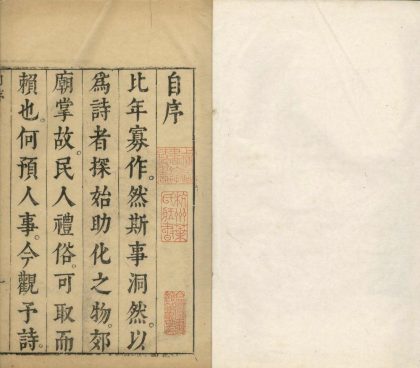 自序
比年寡作。然斯事洞然。以
為詩者探始助化之物。郊
廟掌故。民人禮俗。可取而
賴也。何預人事。今觀予詩。